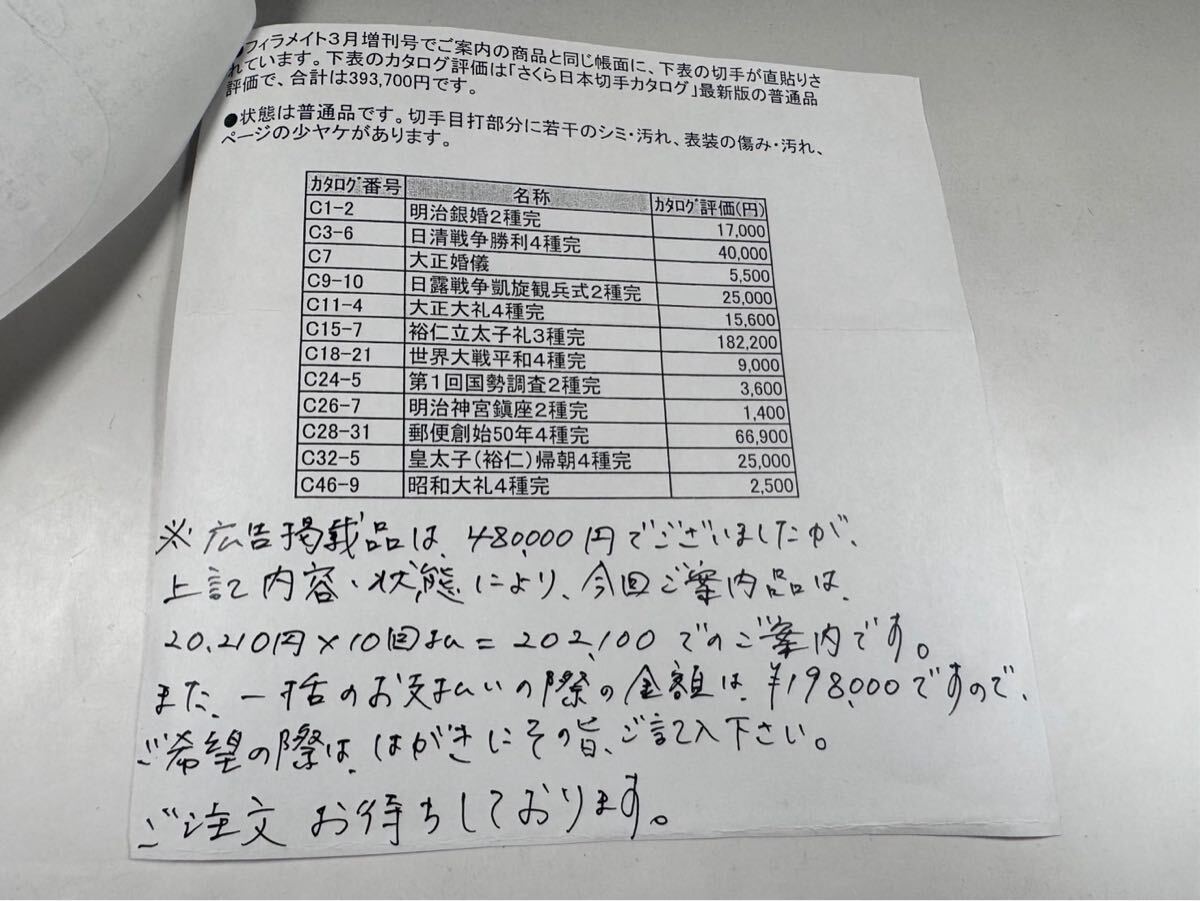 ●フィラメイト3月増刊号でご案内の商品と同じ帳面に、下表の切手が直貼りさ
れています。下表のカタログ評価は「さくら日本切手カタログ」最新版の普通品
評価で、合計は393,700円です。
●状態は普通品です。切手目打部分に若干のシミ・汚れ、表装の傷み・汚れ、
ページの少ヤケがあります。
ｶﾀﾛｸﾞ番号 名称 ｶﾀﾛｸﾞ評価(円)
C1-2 明治銀婚2種完 17,000
C3-6 日清戦争勝利4種完 40,000
C7 大正婚儀 5,500
C9-10 日露戦争凱旋観兵式2種完 25,000
C11-4 大正大礼4種完 15,600
C15-7 裕仁立太子礼3種完 182,200
C18-21 世界大戦平和4種完 9,000
C24-5 第1回国勢調査2種完 3,600
C26-7 明治神宮鎮座2種完 1,400
C28-31 郵便創始50年4種完 66,900
C32-5 皇太子(裕仁)帰朝4種完 25,000
C46-9 昭和大礼4種完 2,500
※広告掲載品は、480,000円でございましたが、
上記内容・状態により、今回ご案内品は、
20,210円×10回払=202,100でのご案内です。
また、一括のお支払いの際の金額は、¥198,000ですので、
ご希望の際は、はがきにその旨、ご記入下さい。
ご注文お待ちしております。